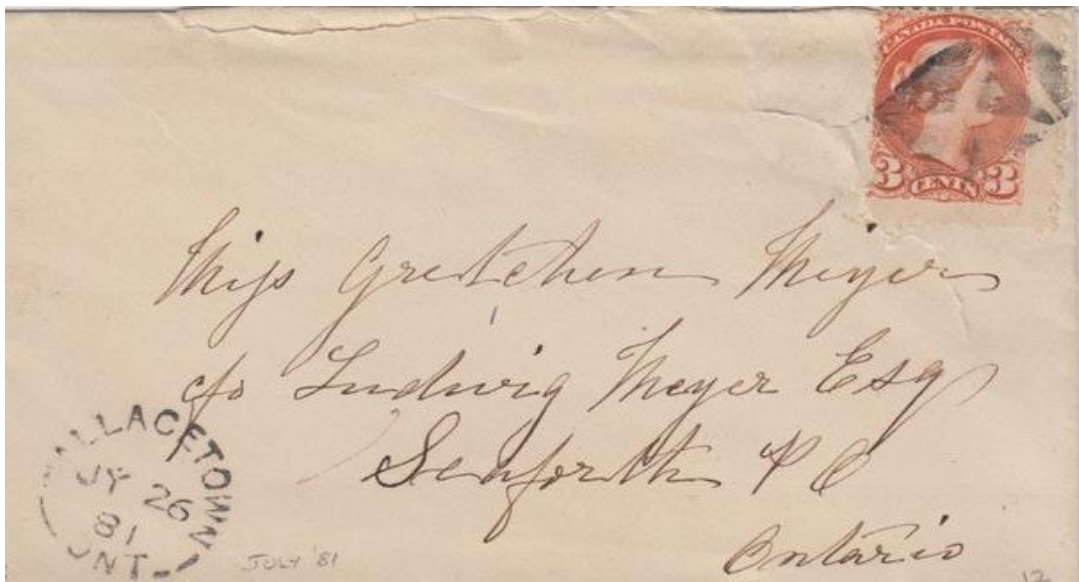 CANADA POSTAGE
3 CENTS 3
Miss Gretchen Meyer
c/o Ludwig Meyer Esq
Seaforth P O
Ontario
WALLACETOWN
JY 26
81
ONT
JULY '81
12